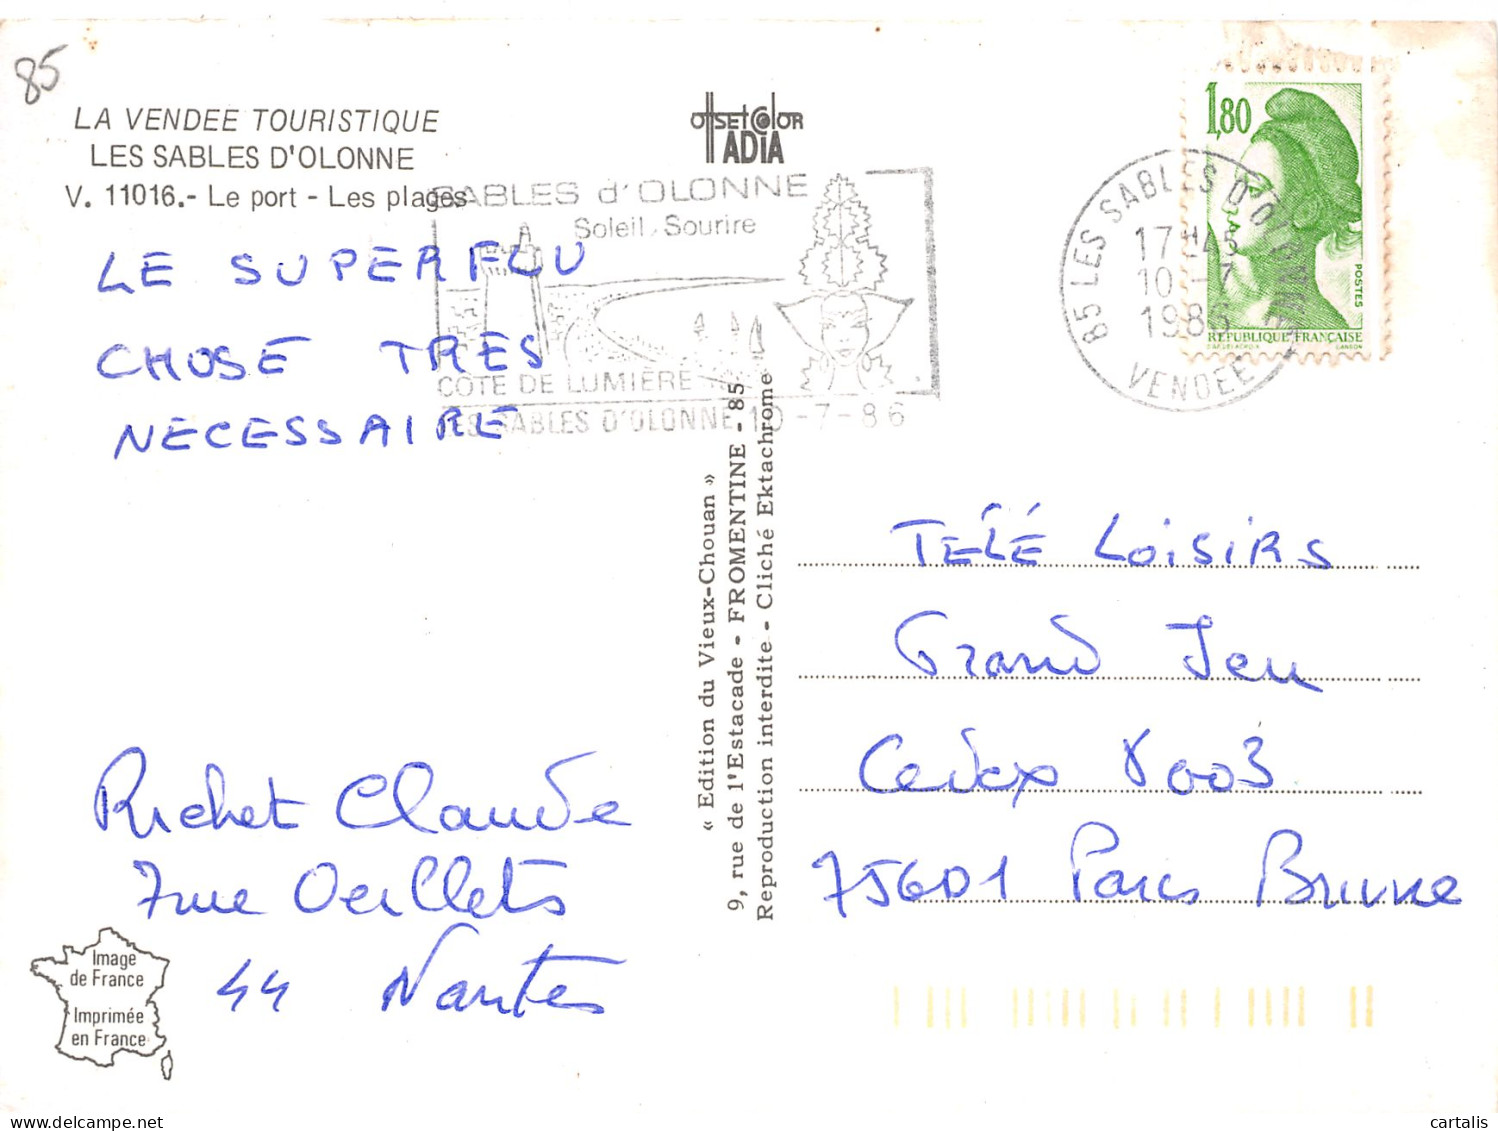 85
LA VENDEE TOURISTIQUE
LES SABLES D'OLONNE
V. 11016.- Le port - Les plages
OffSEtColoR
ADIA
SABLES d'OLONNE
Soleil, Sourire
COTE DE LUMIÈRE
LES SABLES D'OLONNE 10-7-86
85 LES SABLES D'OLONNE
17H45
10-7
1986
VENDEE
1,80
POSTES
REPUBLIQUE FRANÇAISE
D'AP. DELACROIX GANDON
LE SUPERFLU
CHOSE TRES
NECESSAIRE
Richet Claude
7 rue Oeillets
44 Nantes
Image
de France
Imprimée
en France
« Edition du Vieux-Chouan »
9, rue de l'Estacade - FROMENTINE - 85
Reproduction interdite - Cliché Ektachrome
TÉLÉ LOiSiRS
Grand Jeu
Cedex 8003
75601 Paris Brune
cartalis
delcampe.net